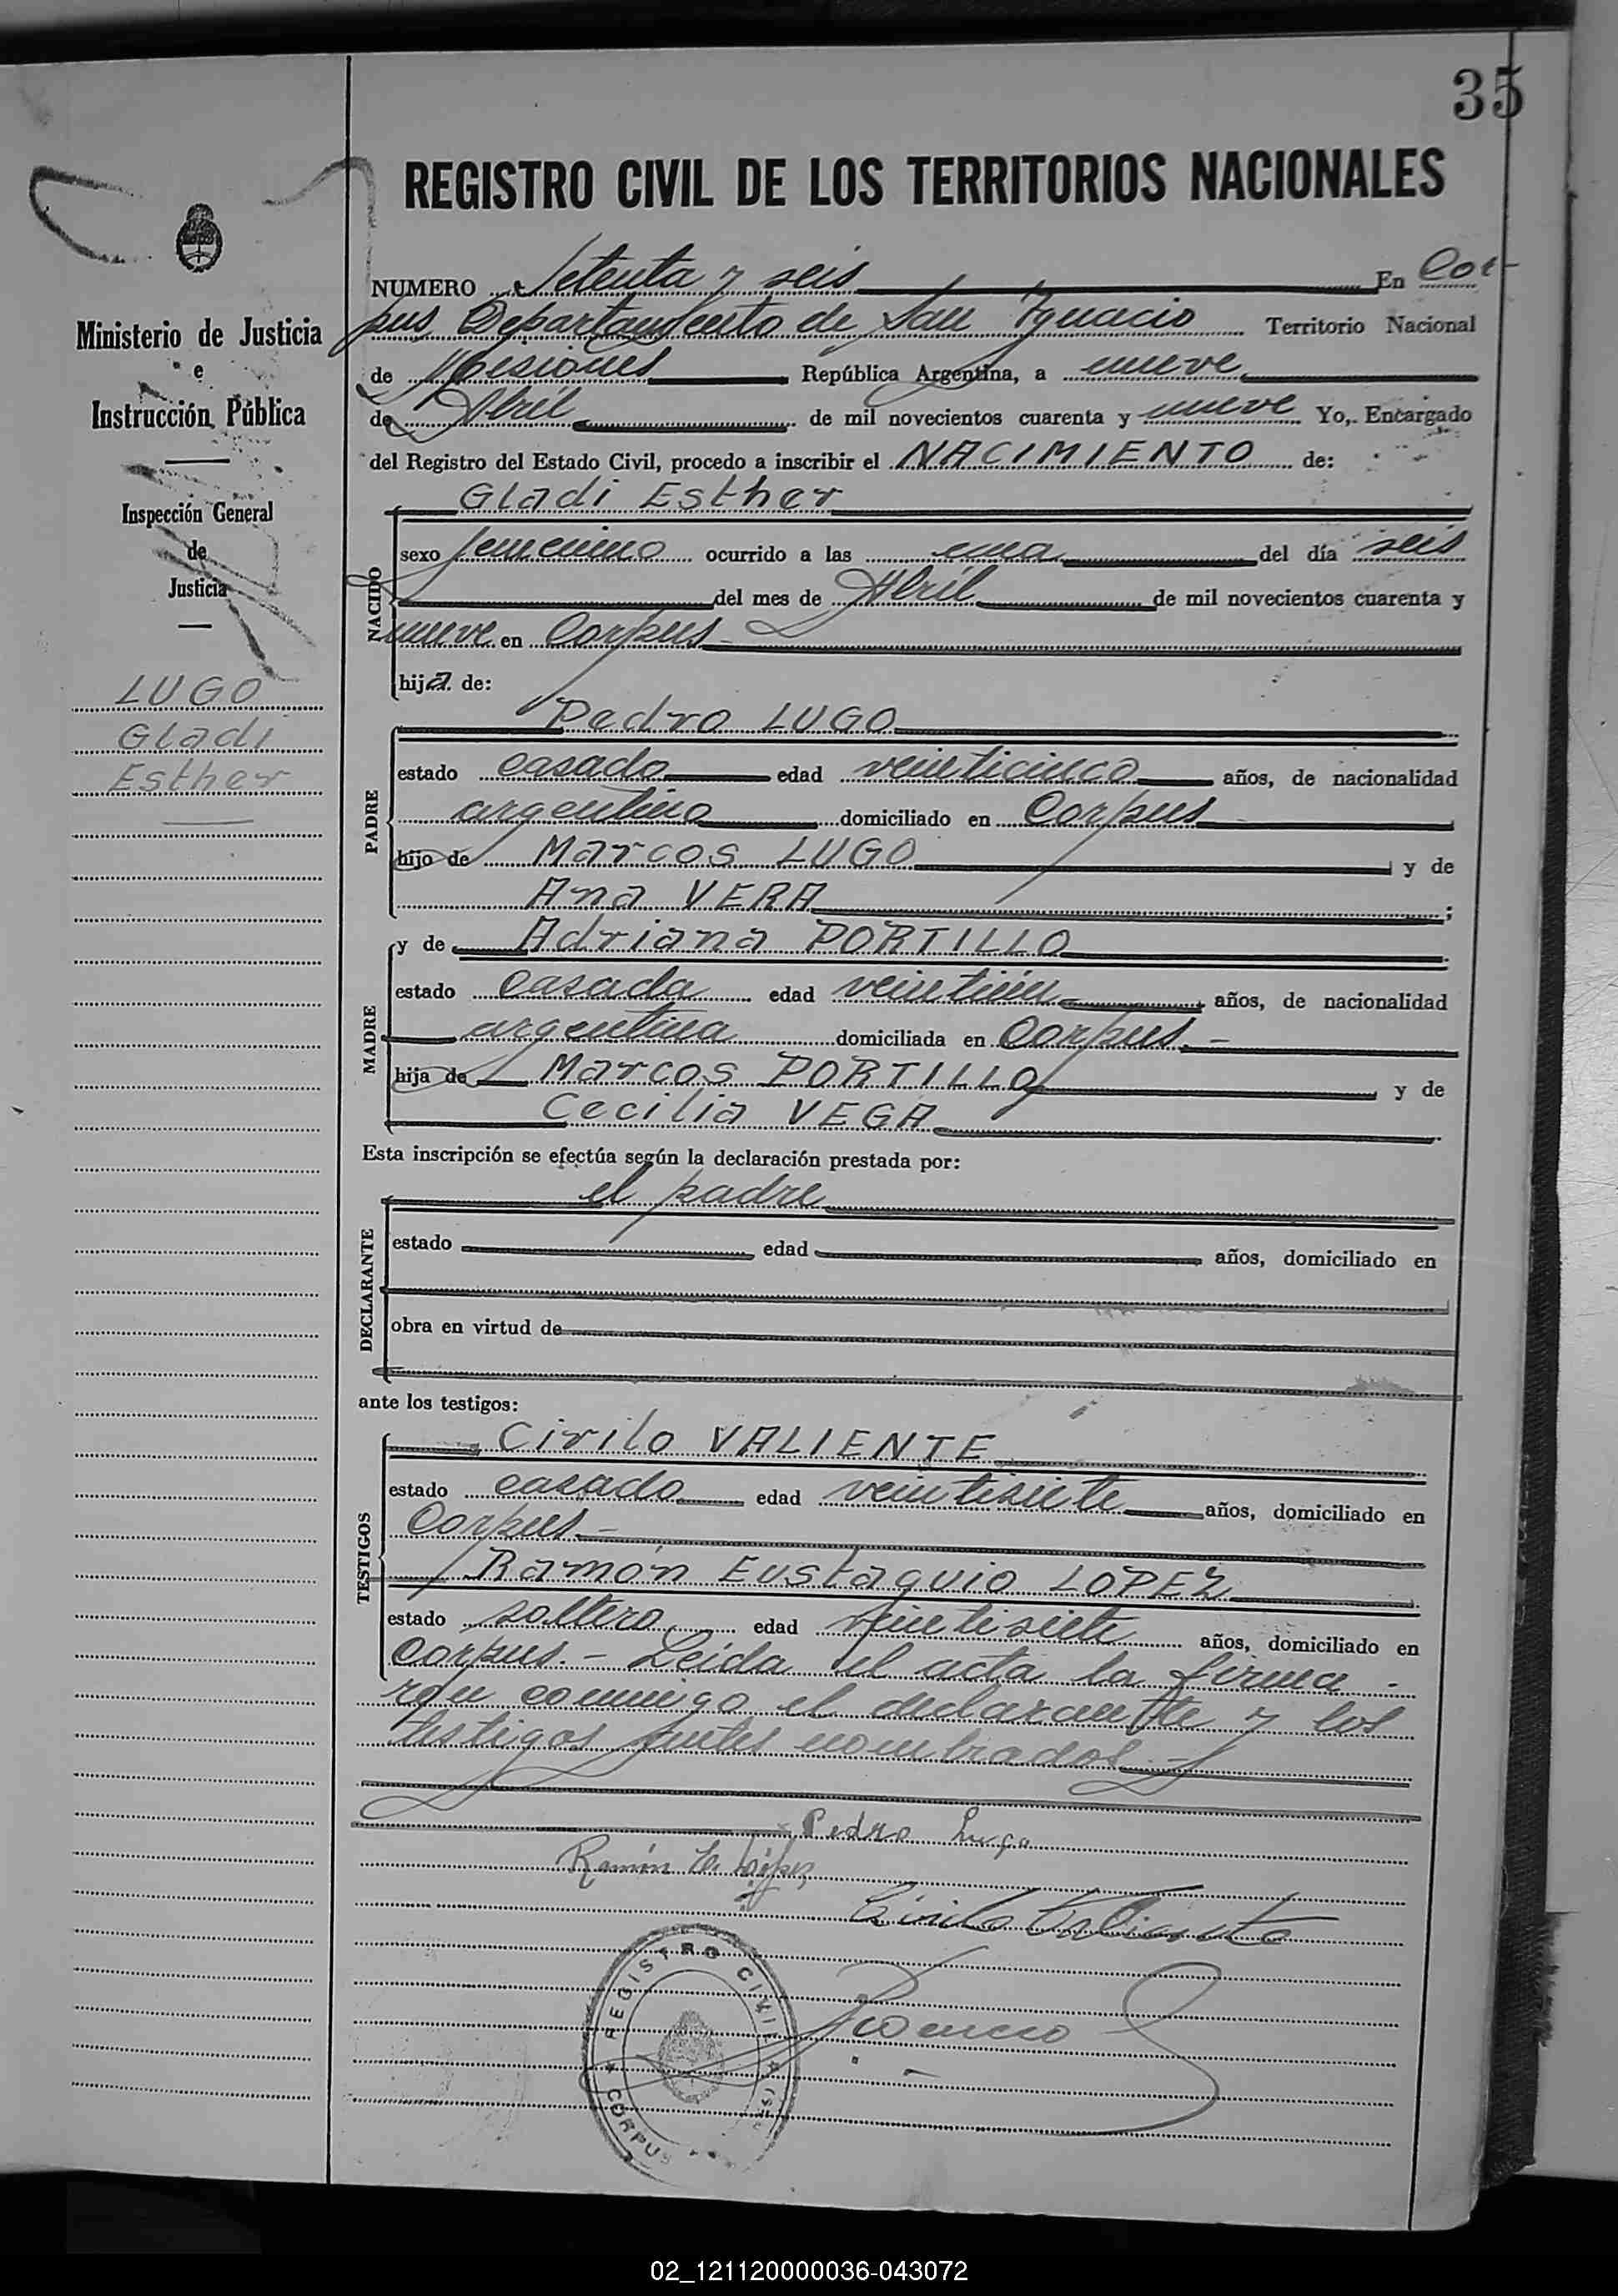 35
REGISTRO CIVIL DE LOS TERRITORIOS NACIONALES
Ministerio de Justicia
e
Instrucción Pública
Inspección General
de
Justicia
LUGO
Gladi
Esther
NUMERO Setenta y seis En Cor-
pus Departamento de San Ignacio Territorio Nacional
de Misiones República Argentina, a nueve
de Abril de mil novecientos cuarenta y nueve Yo, Encargado
del Registro del Estado Civil, procedo a inscribir el NACIMIENTO de:
Gladi Esther
NACIDO
sexo femenino ocurrido a las una del día seis
del mes de Abril de mil novecientos cuarenta y
nueve en Corpus
hija de:
Pedro LUGO
PADRE
estado casado edad veinticinco años, de nacionalidad
argentino domiciliado en Corpus
hijo de Marcos LUGO y de
Ana VERA ;
y de Adriana PORTILLO
MADRE
estado casada edad veintiún años, de nacionalidad
argentina domiciliada en Corpus.-
hija de Marcos PORTILLO y de
Cecilia VEGA
Esta inscripción se efectúa según la declaración prestada por:
el padre
DECLARANTE
estado edad años, domiciliado en
obra en virtud de
ante los testigos:
Cirilo VALIENTE
TESTIGOS
estado casado edad veintisiete años, domiciliado en
Corpus.-
Ramón Eustaquio LOPEZ
estado soltero edad veintisiete años, domiciliado en
Corpus.- Leida el acta la firma-
ron conmigo el declarante y los
testigos antes nombrados.-
Pedro Lugo
Ramón E. López
Cirilo Valiente
REGISTRO CIVIL
CORPUS
02_121120000036-043072